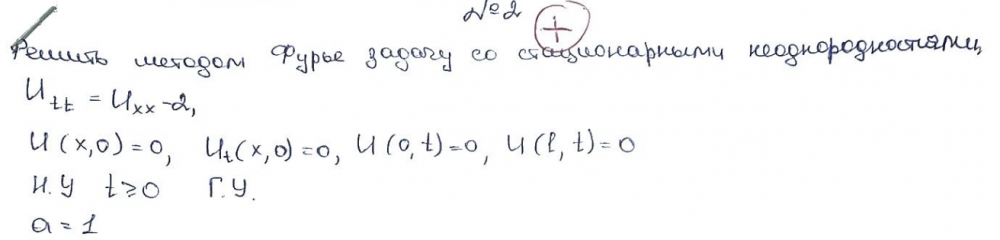 №2
Решить методом Фурье задачу со стационарными неоднородностями,
U_tt = U_xx -2,
U(x,0)=0, U_t(x,0)=0, U(0,t)=0, U(l,t)=0
Н.У t≥0 Г.У.
a = 1